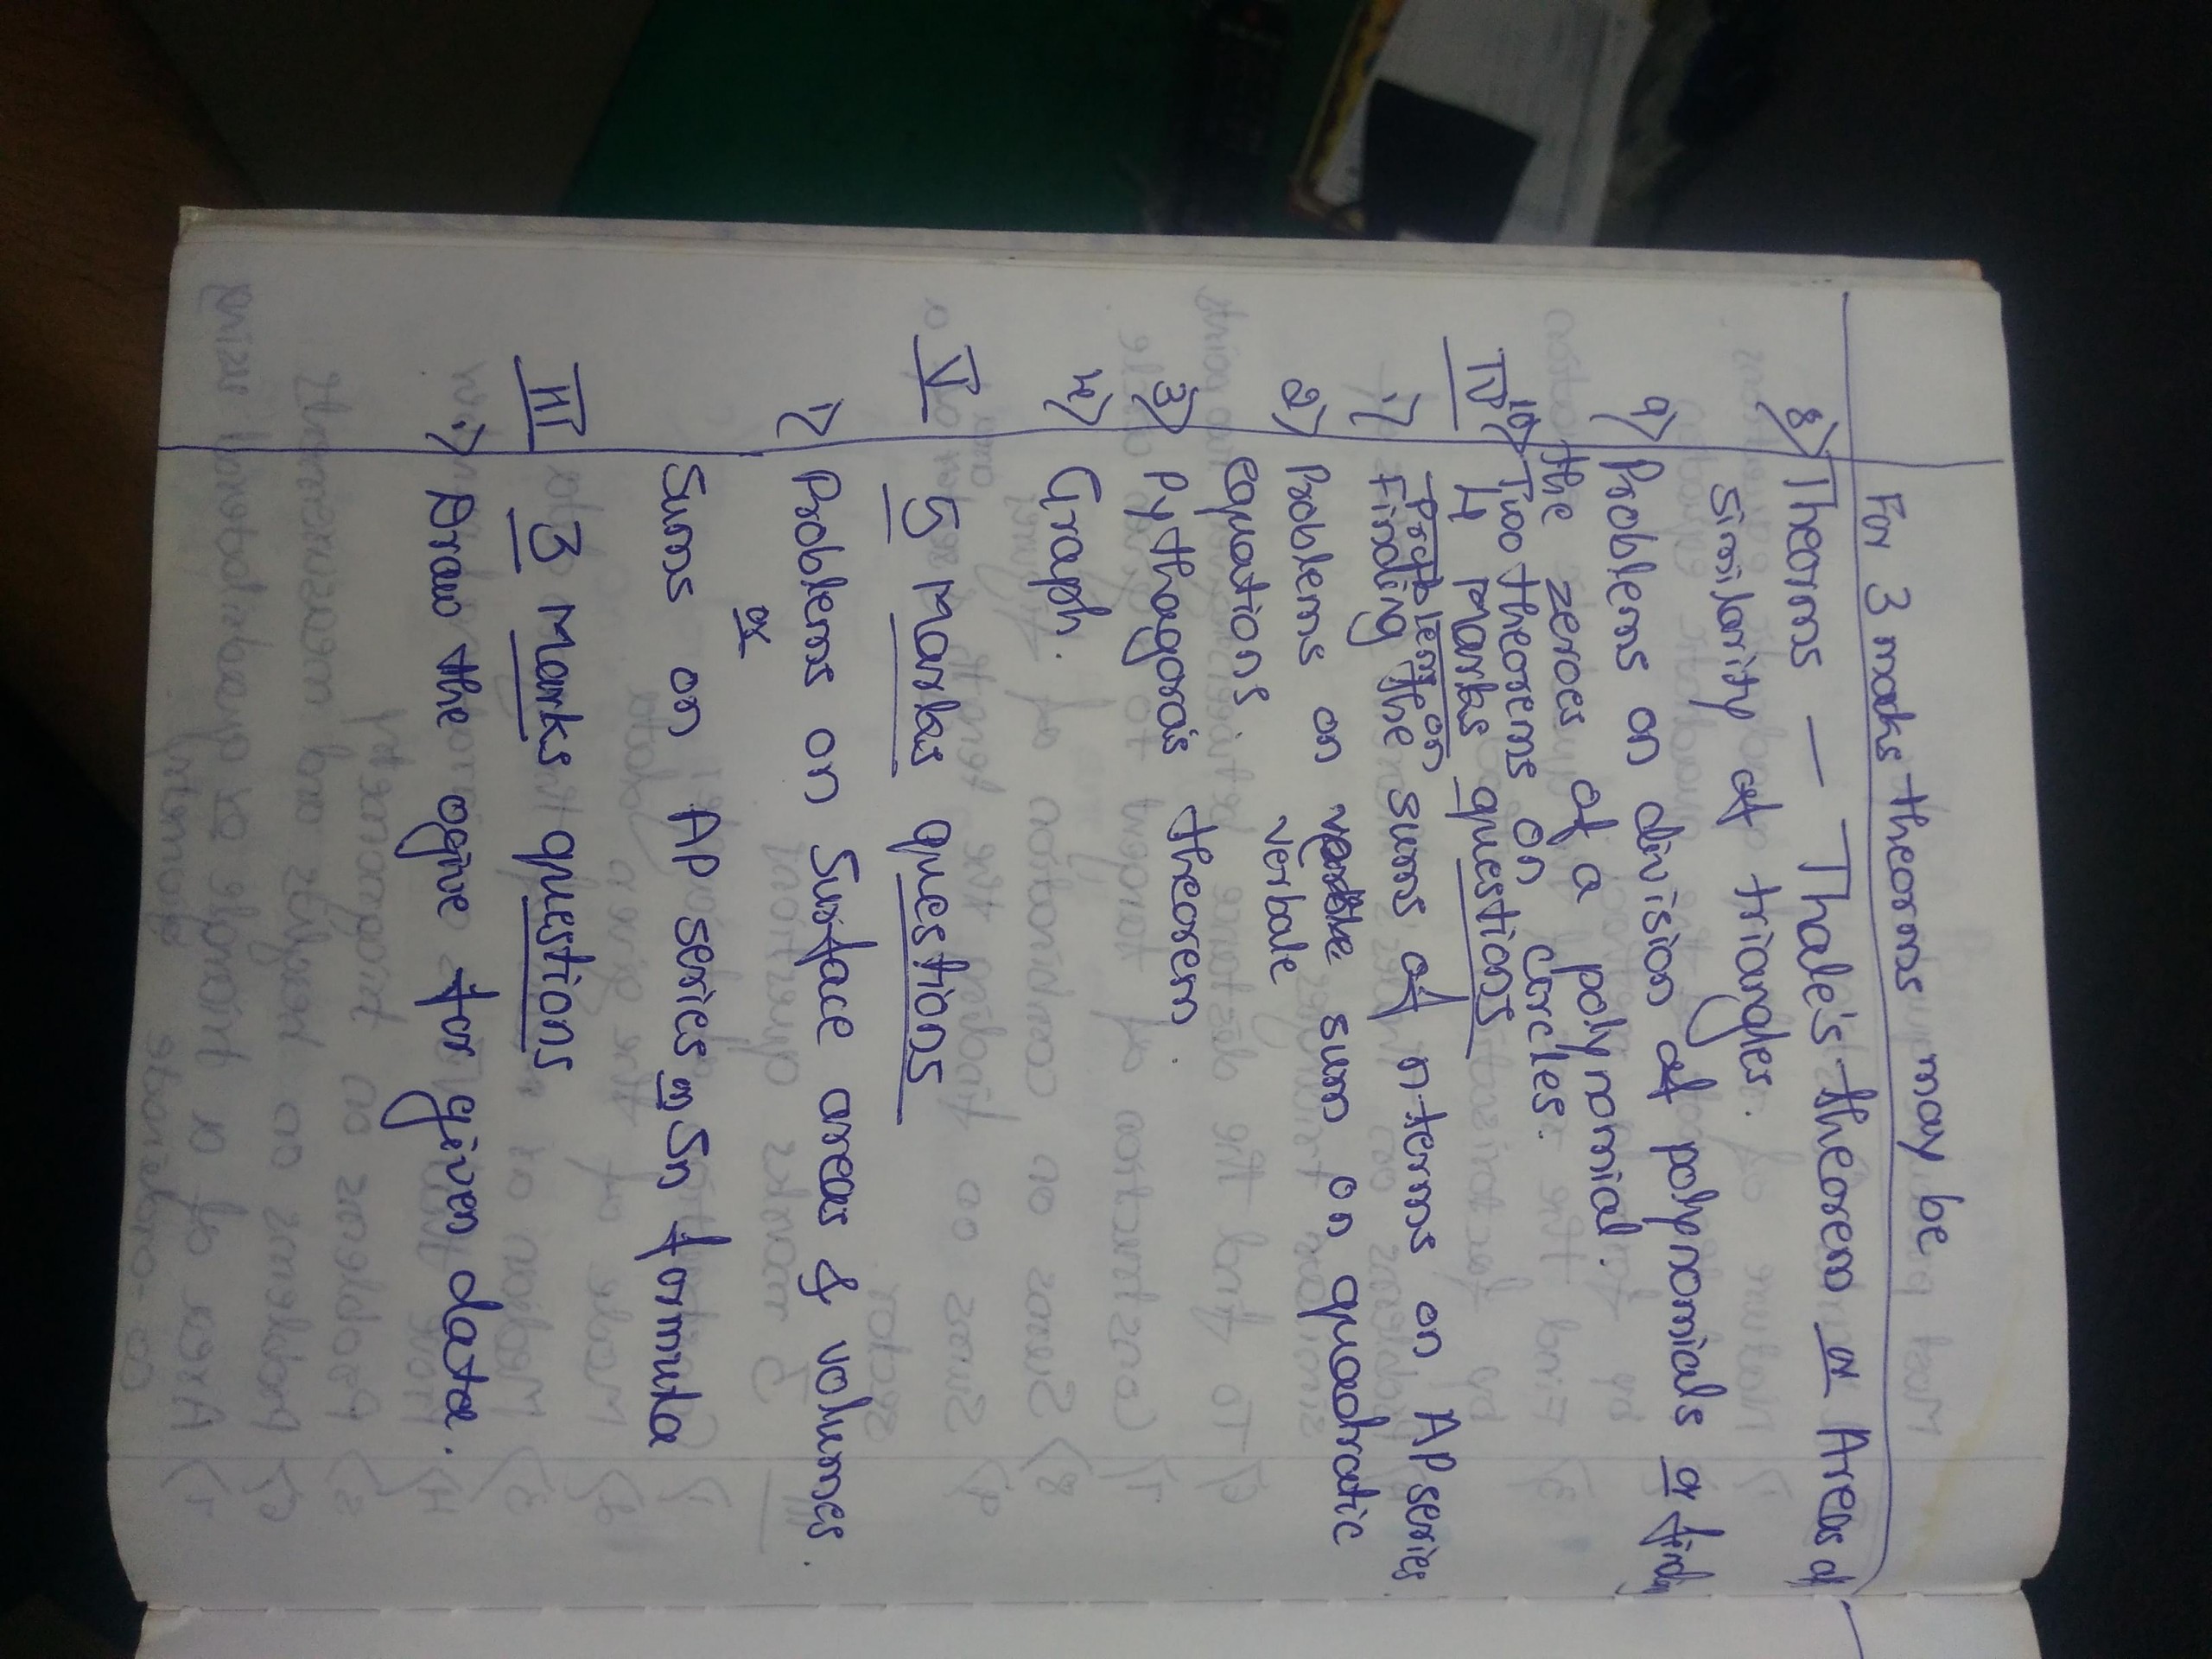 For 3 marks theorms may be
8) Theorms — Thale's theorem or Areas of
similarity of triangles.
9) Problems on division of polynomials or find
the zeroes of a polynomial.
10) Two theorems on circles.
IV 4 Marks questions
Problems on
1) Finding the sums of n terms on AP series.
2) Problems on sum on quadratic
verbale
equations
3) Pythagora's theorem.
4) Graph.
V 5 Marks questions
1) Problems on Surface areas & volumes.
or
Sums on AP series Sn formula
III 3 Marks questions
1) Draw the ogive for given data.